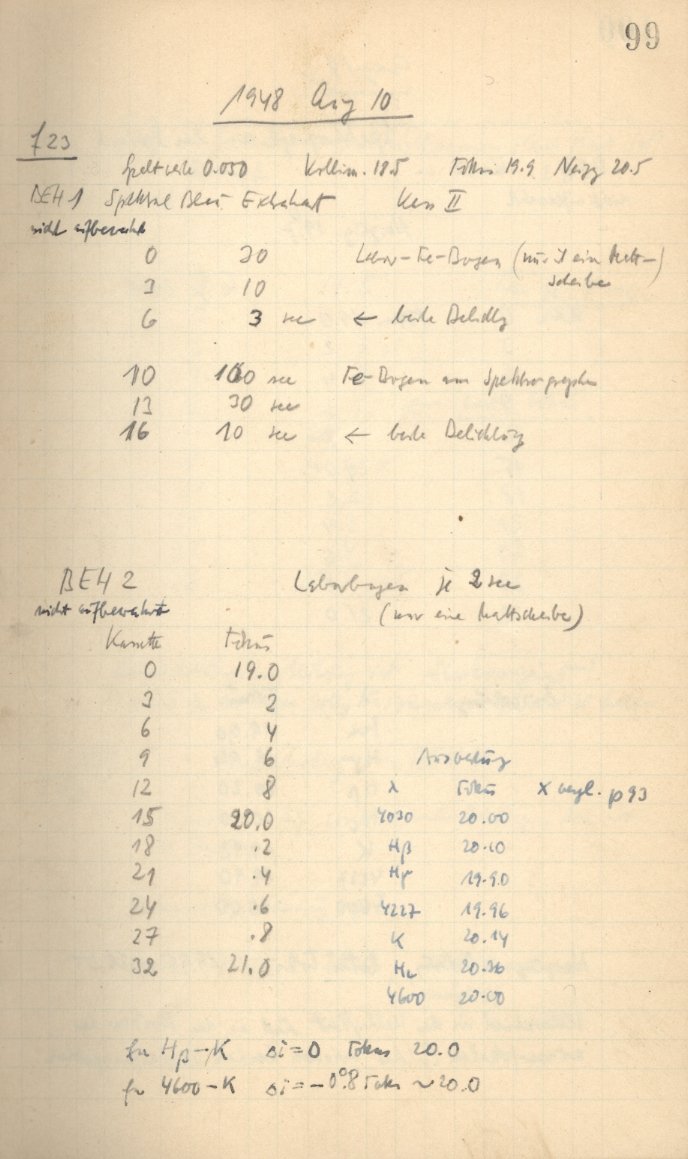 99
1948 Aug 10
f 23
Spaltweite 0.050 Kollim. 18.5 Fokus 19.9 Neigg 20.5
BEH 1 Spektral Blau Extrahart Kass II
nicht aufbewahrt
0 30 Labor-Fe-Bogen (nur 1 eine Matt-
3 10 scheibe)
6 3 sec ← beste Belichtg
10 100 sec Fe-Bogen am Spektrographen
13 30 sec
16 10 sec ← beste Belichtung
BEH 2 Laborbogen je 2 sec
nicht aufbewahrt (nur eine Mattscheibe)
Kassette Fokus
0 19.0
3 2
6 4
9 6 Auswertung
12 8 λ Fokus X vergl. p 93
15 20.0 4030 20.00
18 .2 Hβ 20.10
21 .4 Hγ 19.90
24 .6 4227 19.96
27 .8 K 20.14
32 21.0 20.36
4600 20.00
für Hβ-K Δi=0 Fokus 20.0
für 4600-K Δi=-0°.8 Fokus ~20.0